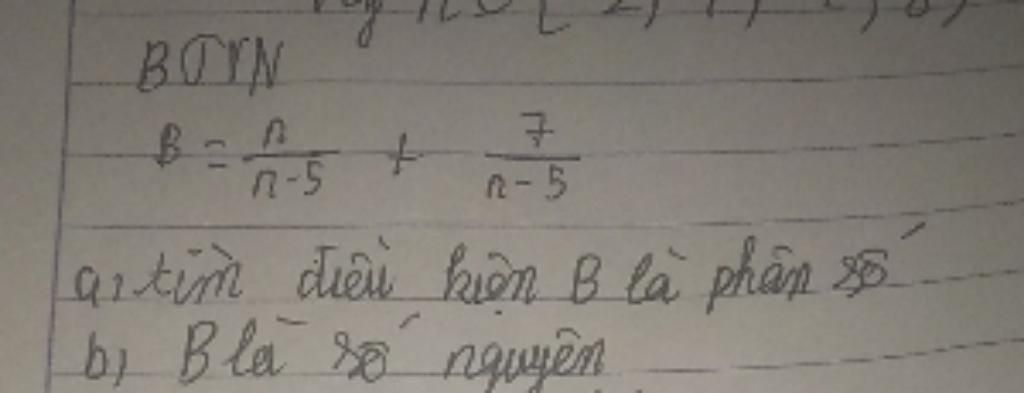 BTVN
B = n/n-5 + 7/n-5
a, tìm điều kiện B là phân số
b, B là số nguyên